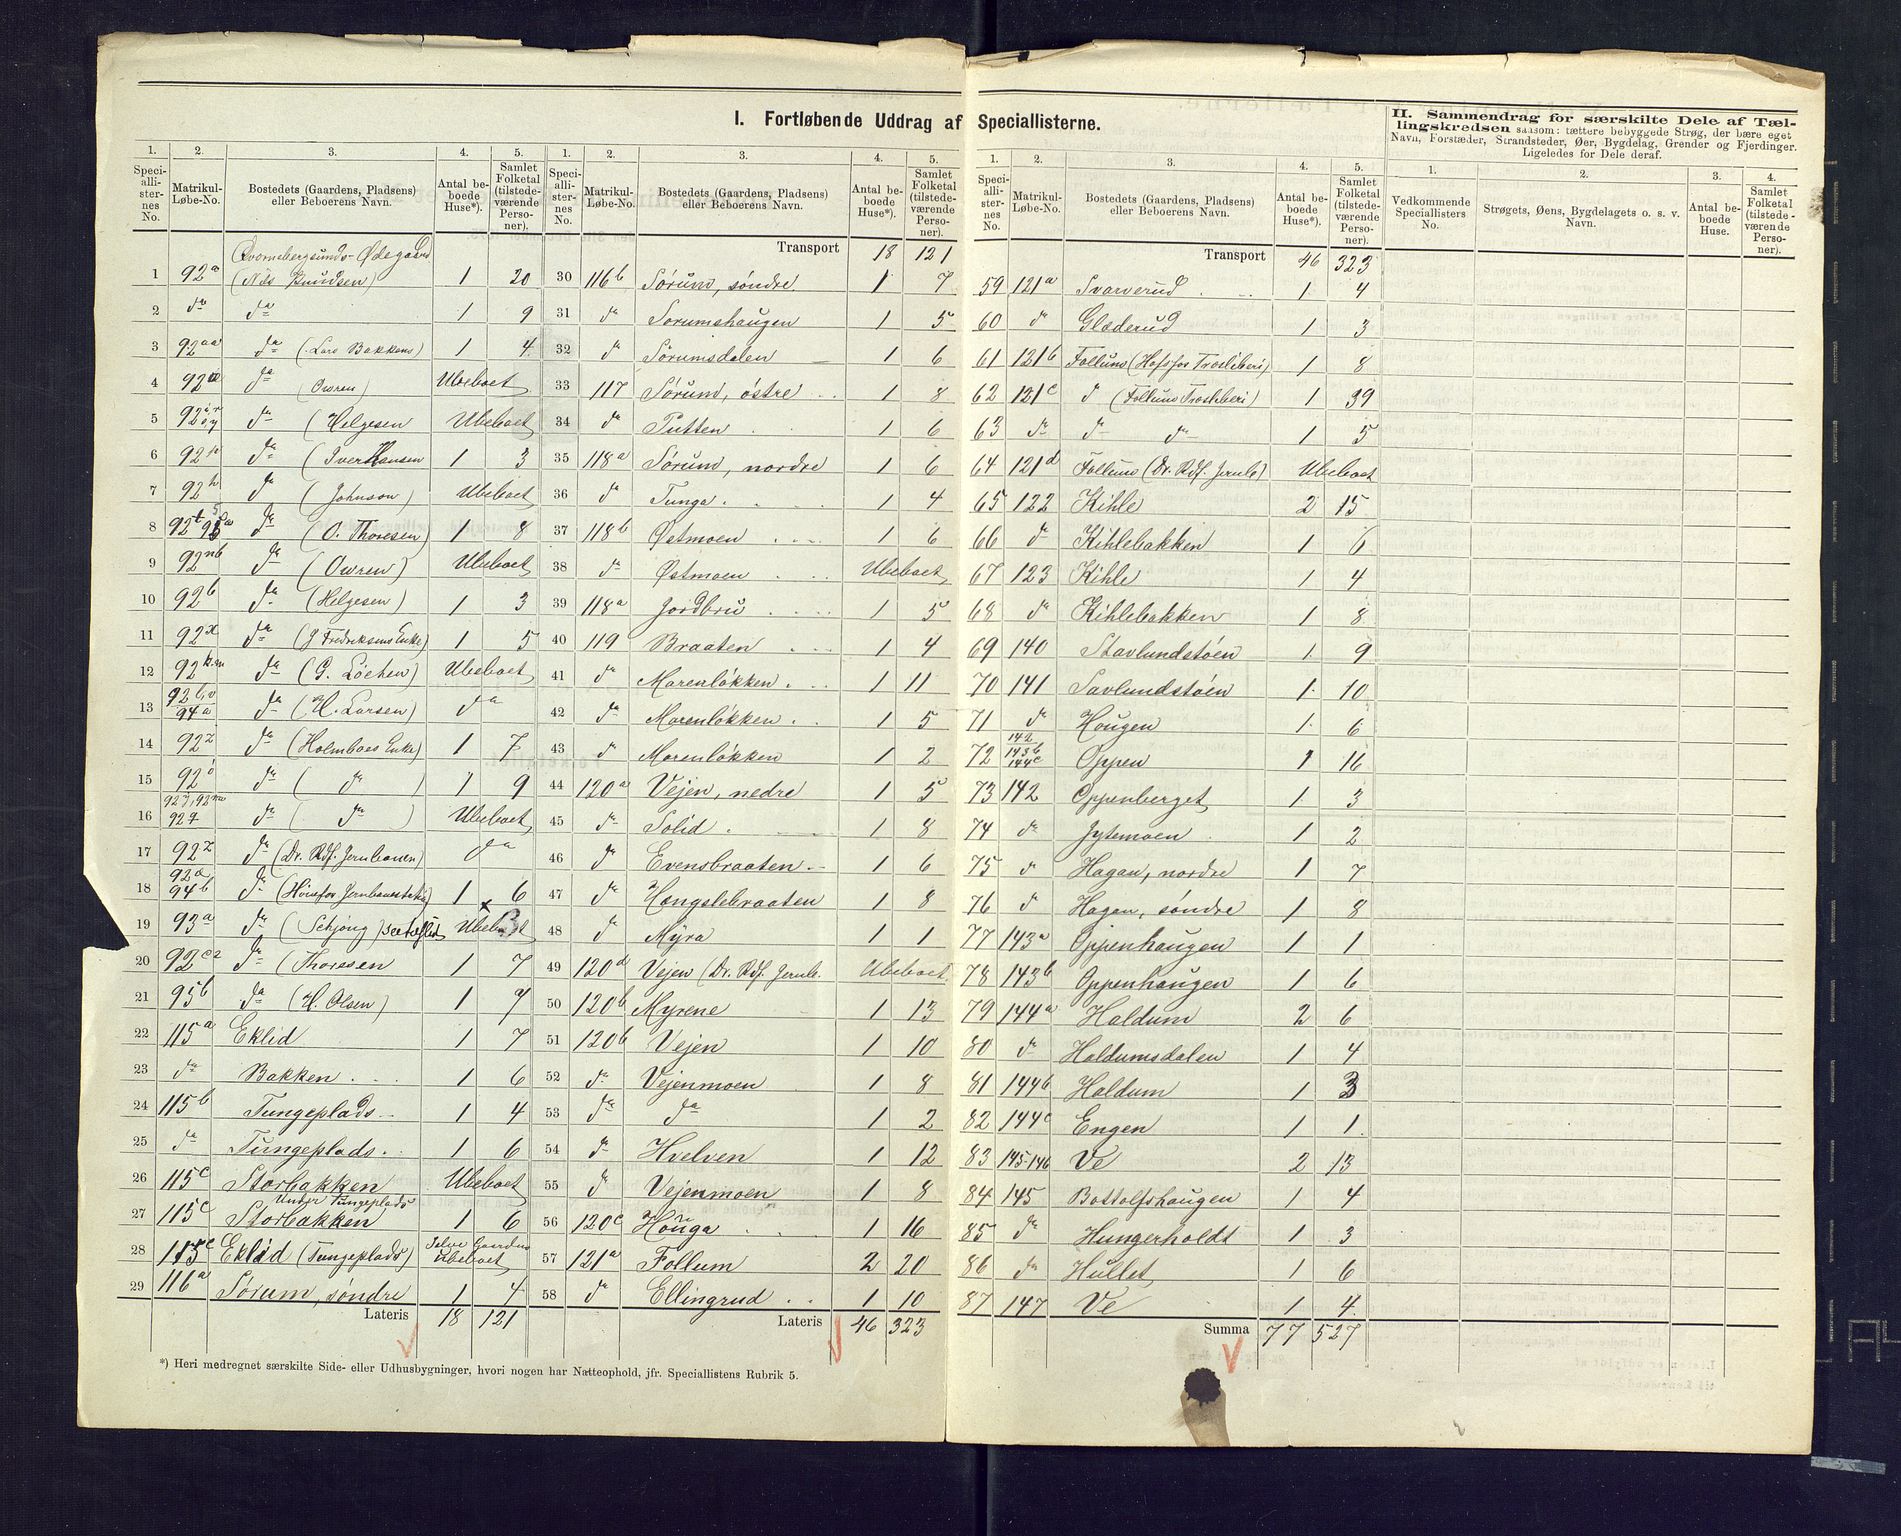 I. Fortløbende Uddrag af Speciallisterne.
1. 2. 3. 4. 5.
Speciallisternes No. Matrikul-Løbe-No. Bostedets (Gaardens, Pladsens) eller Beboerens Navn. Antal beboede Huse*). Samlet Folketal (tilstedeværende Personer).
Ødegaard
1 92a (Nils Knudsen) 1 20
2 da da 1 9
3 92aa da (Lars Bakkens) 1 4
4 da (Owren) Ubeboet
5 da (Helgesen Ubeboet
6 da (Iver Hansen 1 3
7 92h da (Johnson) Ubeboet
8 da (O. Thoresen) 1 8
9 92nb da (Owren) Ubeboet
10 92b da (Helgesen) 1 3
11 92x da (J Fredriksens Enke) 1 5
12 da (G. Löchen) Ubeboet
13 94a da (H. Larsen) da
14 92z da (Holmboes Enke) 1 7
15 da (da) 1 9
16 da (da) Ubeboet
17 92z da (Dr. Rdf. Jernbanen) da
18 92a 94b da 1 6
19 93a da (Schjong) Ubeboet
20 92c2 da (Thoresen 1 7
21 95b da (H. Olsen) 1 7
22 115a Eklid 1 7
23 da Bakken 1 6
24 115b Tungeplads 1 4
25 da Tungeplads 1 6
26 115c Storbakken Ubeboet
Under Tungeplads
27 115c Storbakken 1 6
28 115c Eklid (Tungeplads) Selve Gaarden Ubeboet
29 116a Sørum, søndre 1 4
Lateris 18 121
1. 2. 3. 4. 5.
Speciallisternes No. Matrikul-Løbe-No. Bostedets (Gaardens, Pladsens) eller Beboerens Navn. Antal beboede Huse*). Samlet Folketal (tilstedeværende Personer).
Transport 18 121
30 116b Sørum, søndre 1 7
31 da Sorumshaugen 1 5
32 da Sørumsdalen 1 6
33 117 Sørum, östre 1 8
34 da Putten 1 6
35 118a Sørum, nordre 1 6
36 da Tunga 1 4
37 118b Østmoen 1 6
38 da Østmoen Ubeboet
39 118a Jordbru 1 5
40 119 Braaten 1 4
41 da Marenløkken 1 11
42 da Marenløkken 1 5
43 da Marenløkken 1 2
44 120a Vejen, nedre 1 5
45 da Solid 1 8
46 da Evensbraaten 1 6
47 da Hongslebraaten 1 8
48 da Myra 1 1
49 120d Vejen (Dr. Rdf. Jernb. Ubeboet
50 120b Myrene 1 13
51 120b Vejen 1 10
52 da Vejenmoen 1 8
53 da da 1 2
54 da Hvelven 1 12
55 da Vejenmoen 1 8
56 120c Houga 1 16
57 121a Follum 2 20
58 da Ellingrud 1 10
Lateris 46 323
*) Heri medregnet særskilte Side- eller Udhusbygninger, hvori nogen har Natteophold, jfr. Speciallistens Rubrik 5.
1. 2. 3. 4. 5.
Speciallisternes No. Matrikul-Løbe-No. Bostedets (Gaardens, Pladsens) eller Beboerens Navn. Antal beboede Huse*). Samlet Folketal (tilstedeværende Personer).
Transport 46 323
59 121a Svarverud 1 4
60 da Glæderud 1 3
61 121b Follums (Hofsfos Træsliberi) 1 8
62 121c da (Follums Træsliberi) 1 39
63 da da da 1 5
64 121d Follums (Dr. Rdf. Jernb) Ubeboet
65 122 Kihle 2 15
66 da Kihlebakken 1 6
67 123 Kihle 1 4
68 da Kihlebakken 1 8
69 140 Stavlundstøen 1 9
70 141 Savlundstøen 1 10
71 da Hougen 1 6
72 142 143b 144c Oppen 1 16
73 142 Oppenberget 1 3
74 da Jytemoen 1 2
75 da Hagan, nordre 1 7
76 da Hagen, søndre 1 8
77 143a Oppenhaugen 1 1
78 143b Oppenhaugen 1 6
79 144a Haldum 2 6
80 da Haldumsdalen 1 4
81 144b Haldum 1 3
82 144c Engen 1 1
83 145-146 Ve 2 13
84 145 Bottolfshaugen 1 4
85 da Hungerholdt 1 3
86 da Hullet 1 6
87 147 Ve 1 4
Summa 77 527
II. Sammendrag for særskilte Dele af Tællingskredsen saasom: tættere bebyggede Strøg, der bære eget Navn, Forstæder, Strandsteder, Øer, Bygdelag, Grender og Fjerdinger. Ligeledes for Dele deraf.
1. 2. 3. 4.
Vedkommende Speciallisters No. Strøgets, Øens, Bygdelagets o. s. v. Navn. Antal beboede Huse. Samlet Folketal (tilstedeværende Personer).